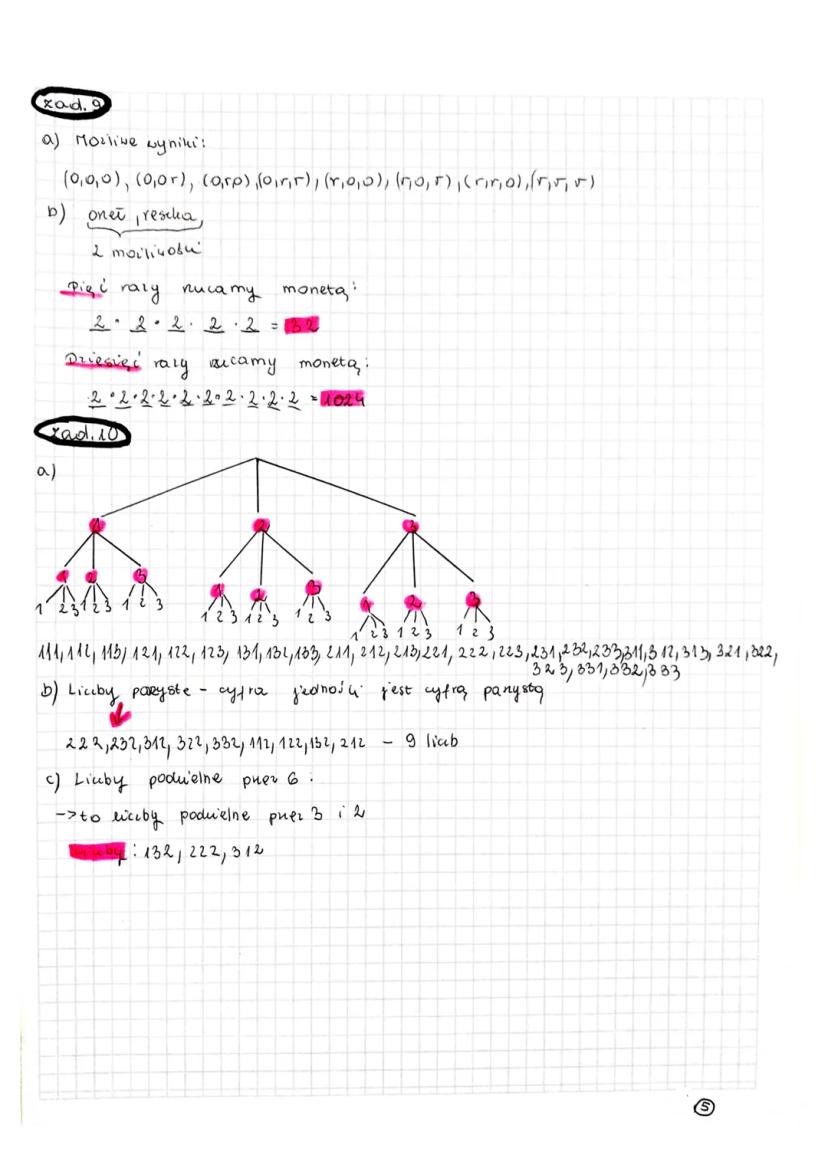 zad. 9
a) Możliwe wyniki:
(o,o,o), (o,o r), (o,r,o), (o,r,r), (r,o,o), (r,o,r), (r,r,o), (r,r,r)
b) orzeł, reszka,
2 możliwości
Pięć razy rzucamy monetą:
2 · 2 · 2 · 2 · 2 = 32
Dziesięć razy rzucamy monetą:
2 · 2 · 2 · 2 · 2 · 2 · 2 · 2 · 2 · 2 = 1024
zad. 10
a)
1 2 3
1 2 3 1 2 3 1 2 3
1 2 3 1 2 3 1 2 3 1 2 3 1 2 3 1 2 3 1 2 3 1 2 3 1 2 3
111, 112, 113, 121, 122, 123, 131, 132, 133, 211, 212, 213, 221, 222, 223, 231, 232, 233, 311, 312, 313, 321, 322,
323, 331, 332, 333
b) Liczby parzyste - cyfra jedności jest cyfrą parzystą
222, 232, 312, 322, 332, 112, 122, 132, 212 - 9 liczb
c) Liczby podzielne przez 6:
-> to liczby podzielne przez 3 i 2
Liczby: 132, 222, 312
5